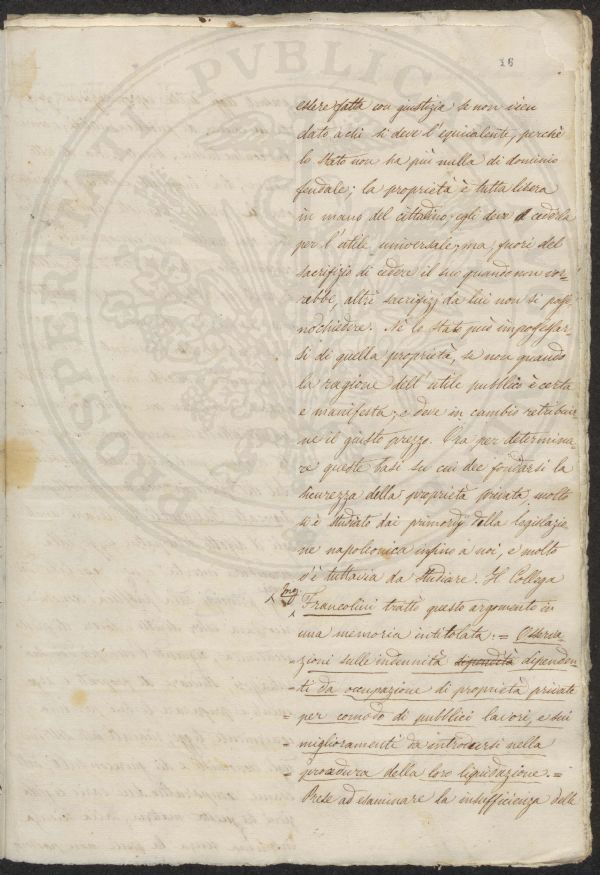 16
essere fatta con giustizia se non vien
dato a chi si deve l'equivalente, perchè
lo stato non ha più nulla di dominio
feudale; la proprietà è tutta libera
in mano del cittadino; egli deve cederla
per l'utile universale, ma, fuori del
sacrifizio di cedere il suo quando non vor-
rebbe, altri sacrifizj da lui non si posso
no chiedere. Nè lo Stato può impossessar
si di quella proprietà, se non quando
la ragione dell'utile pubblico è certa
e manifesta; e deve in cambio retribuir
ne il giusto prezzo. Ora per determina
re queste basi su cui dee fondarsi la
sicurezza della proprietà privata molto
si è studiato dai primordj della legislazio
ne napoleonica infino a noi, e molto
v'è tuttavia da studiare. Il Collega
Ing.
Francolini trattò questo argomento in
una memoria intitolata: = Osserva
zioni sulle indennità dipendità dipenden
ti da occupazione di proprietà private
per comodo di pubblici lavori, e sui
miglioramenti da introdursi nella
procedura della loro liquidazione. =
Prese ad esaminare la insufficienza delle
PROSPERITATI PUBLICAE